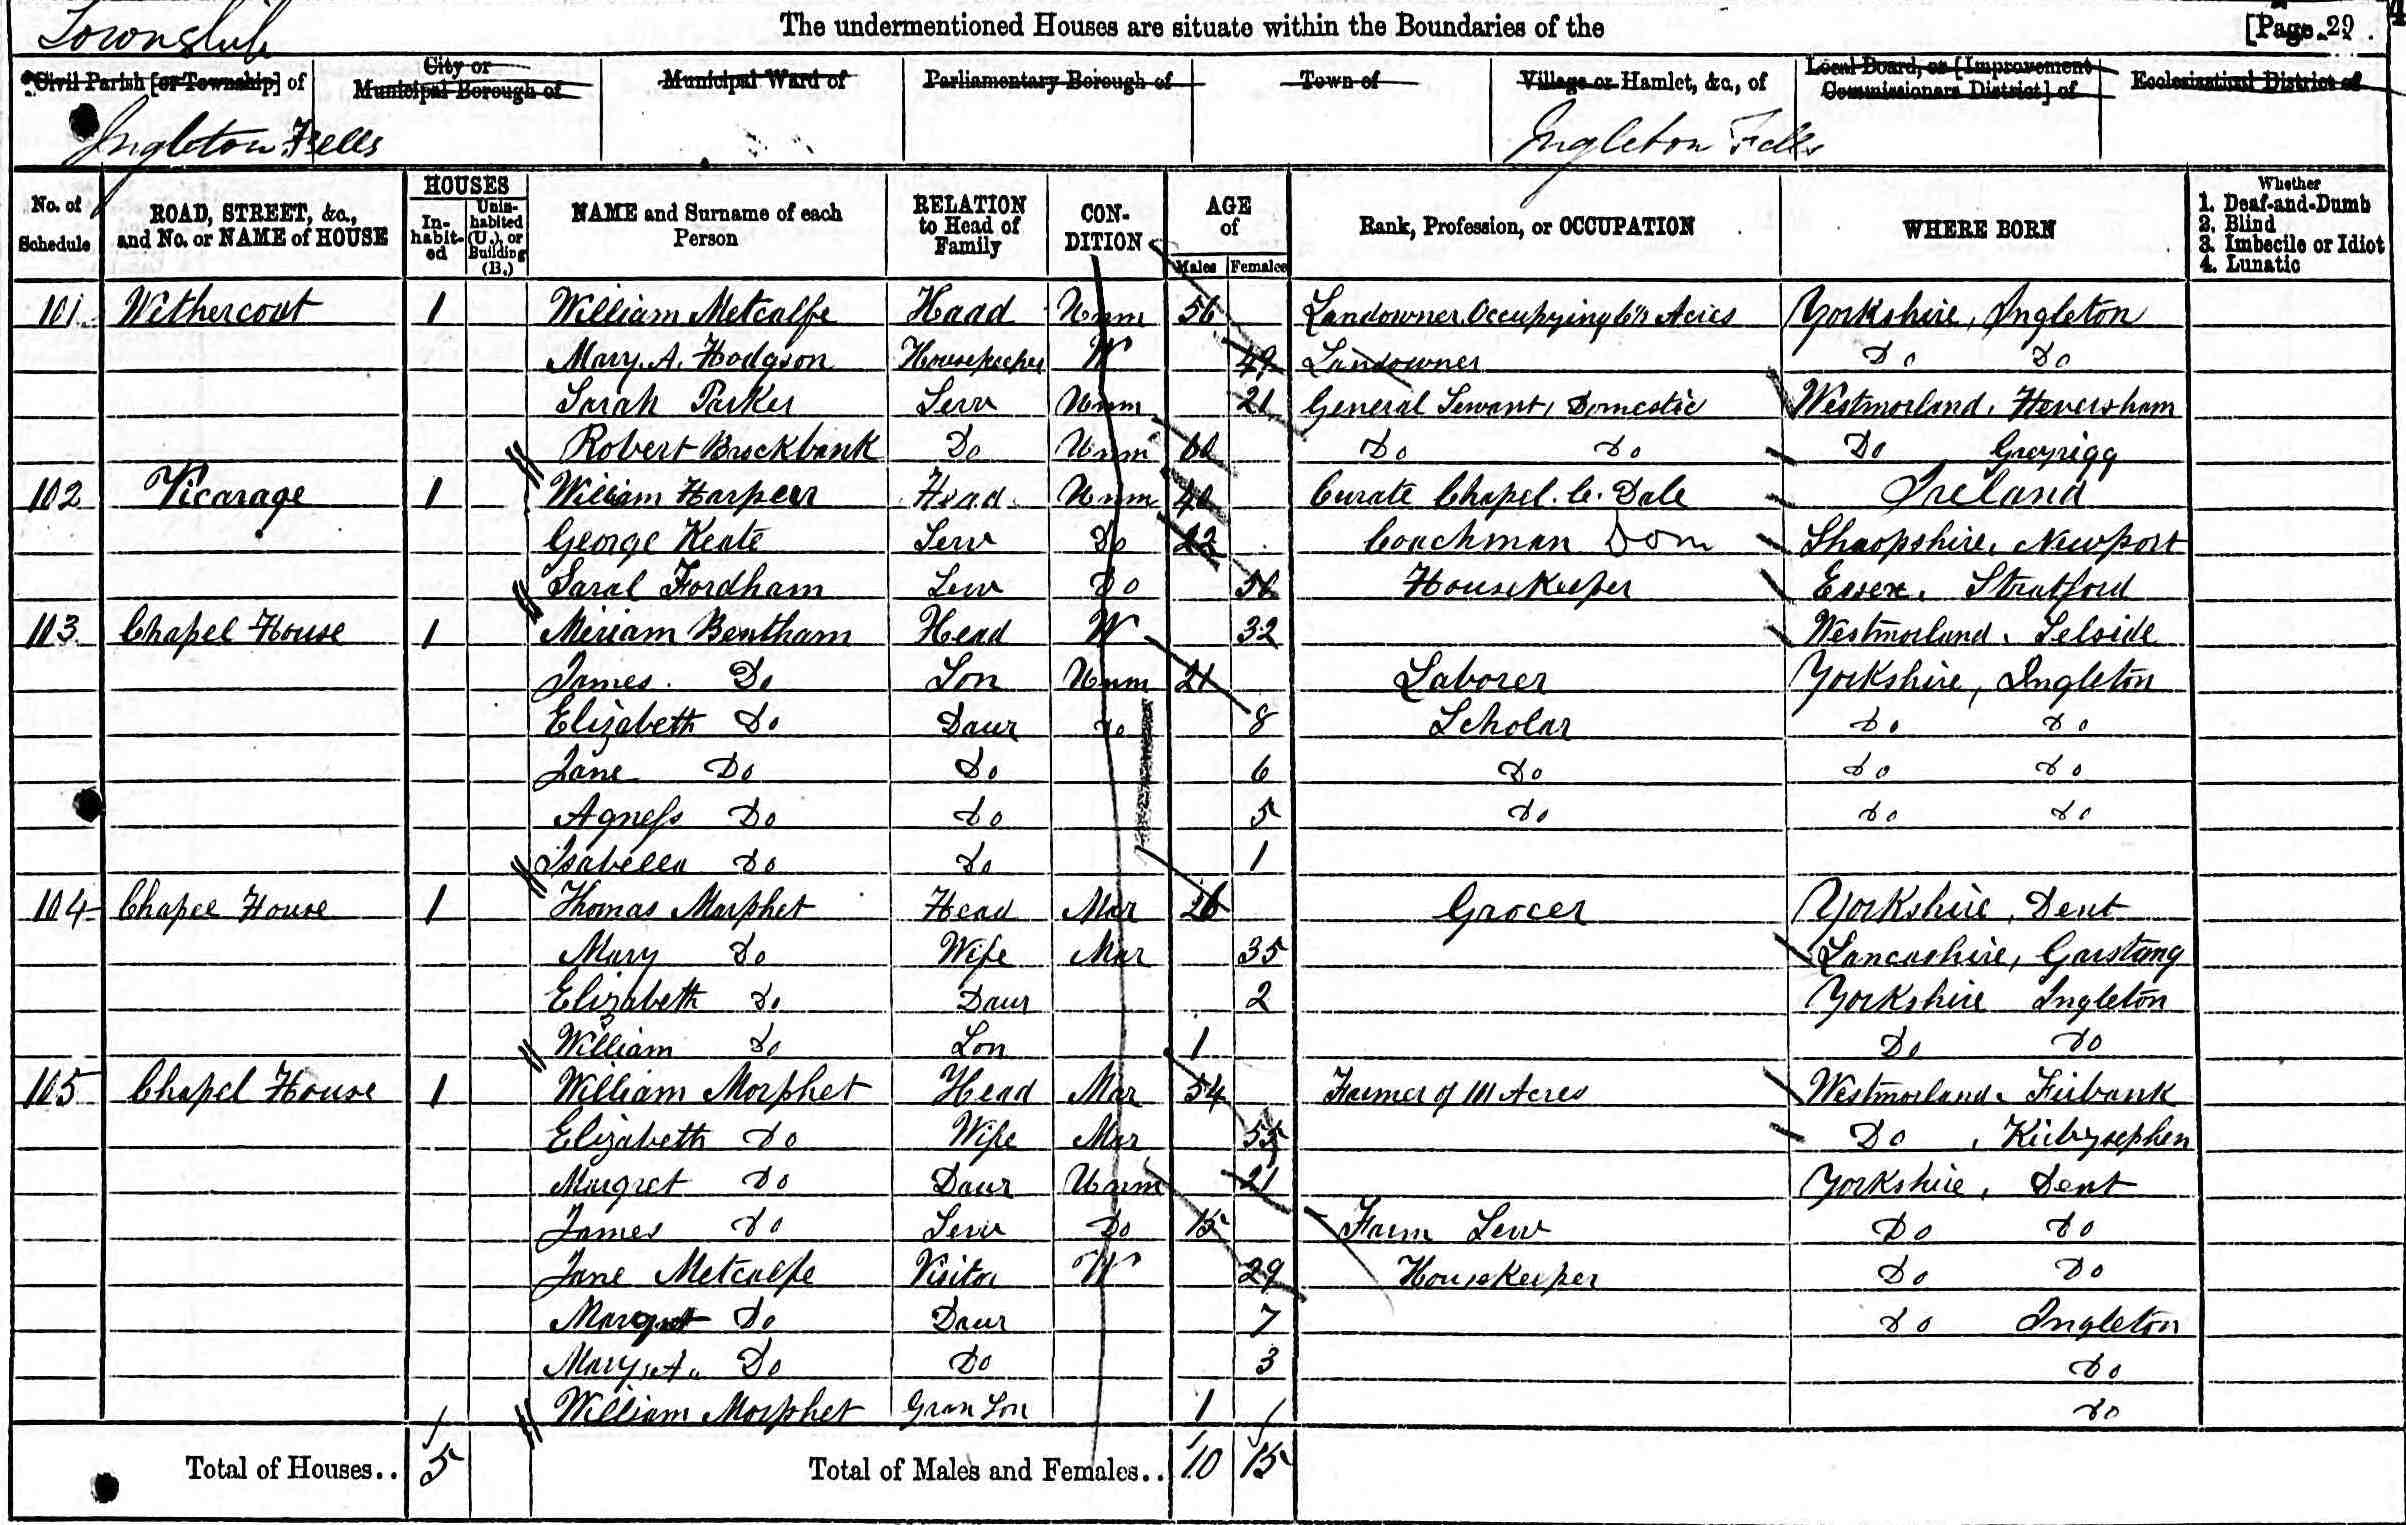 Township
The undermentioned Houses are situate within the Boundaries of the
[Page 29
Civil Parish [or Township] of
City or Municipal Borough of
Municipal Ward of
Parliamentary Borough of
Town of
Village or Hamlet, &c., of
Local Board, or [Improvement Commissioners District] of
Ecclesiastical District of
Ingleton Fells
Ingleton Fells
No. of Schedule
ROAD, STREET, &c., and No. or NAME of HOUSE
HOUSES
In-habit-ed
Unin-habited (U.), or Building (B.)
NAME and Surname of each Person
RELATION to Head of Family
CON-DITION
AGE of
Males
Females
Rank, Profession, or OCCUPATION
WHERE BORN
Whether
1. Deaf-and-Dumb
2. Blind
3. Imbecile or Idiot
4. Lunatic
101 Wethercout 1 William Metcalfe Head Unm 56 Landowner Occupying Acres Yorkshire, Ingleton
Mary. A. Hodgson Housekeeper W 49 Landowner Do Do
Sarah Parker Serv Unm 21 General Servant, Domestic Westmorland, Heversham
Robert Brockbank Do Unm Do Do Do Greyrigg
102 Vicarage 1 William Harper Head Unm Curate Chapel. le. Dale Ireland
George Keate Serv Do 23 Coachman Dom Shropshire, Newport
Saral Fordham Serv Do 56 Housekeeper Essex, Stratford
103 Chapel House 1 Miriam Bentham Head W 32 Westmorland, Selside
James. Do Son Unm 21 Laborer Yorkshire, Ingleton
Elizabeth Do Daur Do 8 Scholar Do Do
Jane Do Do 6 Do Do Do
Agness Do Do 5 Do Do Do
Isabella Do Do 1
104 Chapel House 1 Thomas Morphet Head Mar 26 Grocer Yorkshire, Dent
Mary Do Wife Mar 35 Lancashire, Garstang
Elizabeth Do Daur 2 Yorkshire Ingleton
William Do Son 1 Do Do
105 Chapel House 1 William Morphet Head Mar 54 Farmer of 101 Acres Westmorland, Firbank
Elizabeth Do Wife Mar 55 Do, Kirbysephen
Margret Do Daur Unm 21 Yorkshire, Dent
James Do Serv Do 15 Farm Serv Do Do
Jane Metcalfe Visitor W 29 Housekeeper Do Do
Margret Do Daur 7 Do Ingleton
Mary. A. Do Do 3 Do
William Morphet Gran Son 1 Do
Total of Houses.. 5
Total of Males and Females.. 10 15